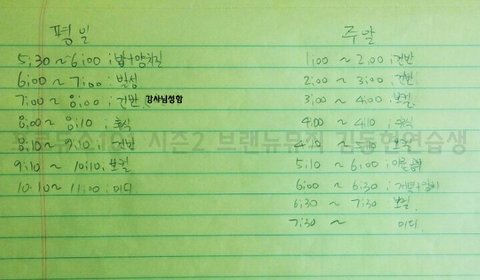 평일
5:30~6:00 : 밥+양치질
6:00 ~ 7:00 : 발성
7:00 ~ 8:00 : 건반 강사님성함
8:00 ~ 8:10 : 휴식
8:10 ~ 9:10 : 건반
9:10 ~ 10:10 : 보컬
10:10 ~ 11:00 : 미디
주말
1:00 ~ 2:00 : 건반
2:00 ~ 3:00 : 건반
3:00 ~ 4:00 : 보컬
4:00 ~ 4:10 : 휴식
4:10 ~ 5:10
5:10 ~ 6:00 :
6:00 ~ 6:30 :
6:30 ~ 7:30 보컬
7:30 ~ 미디
시즌2 브랜뉴뮤직 연습생